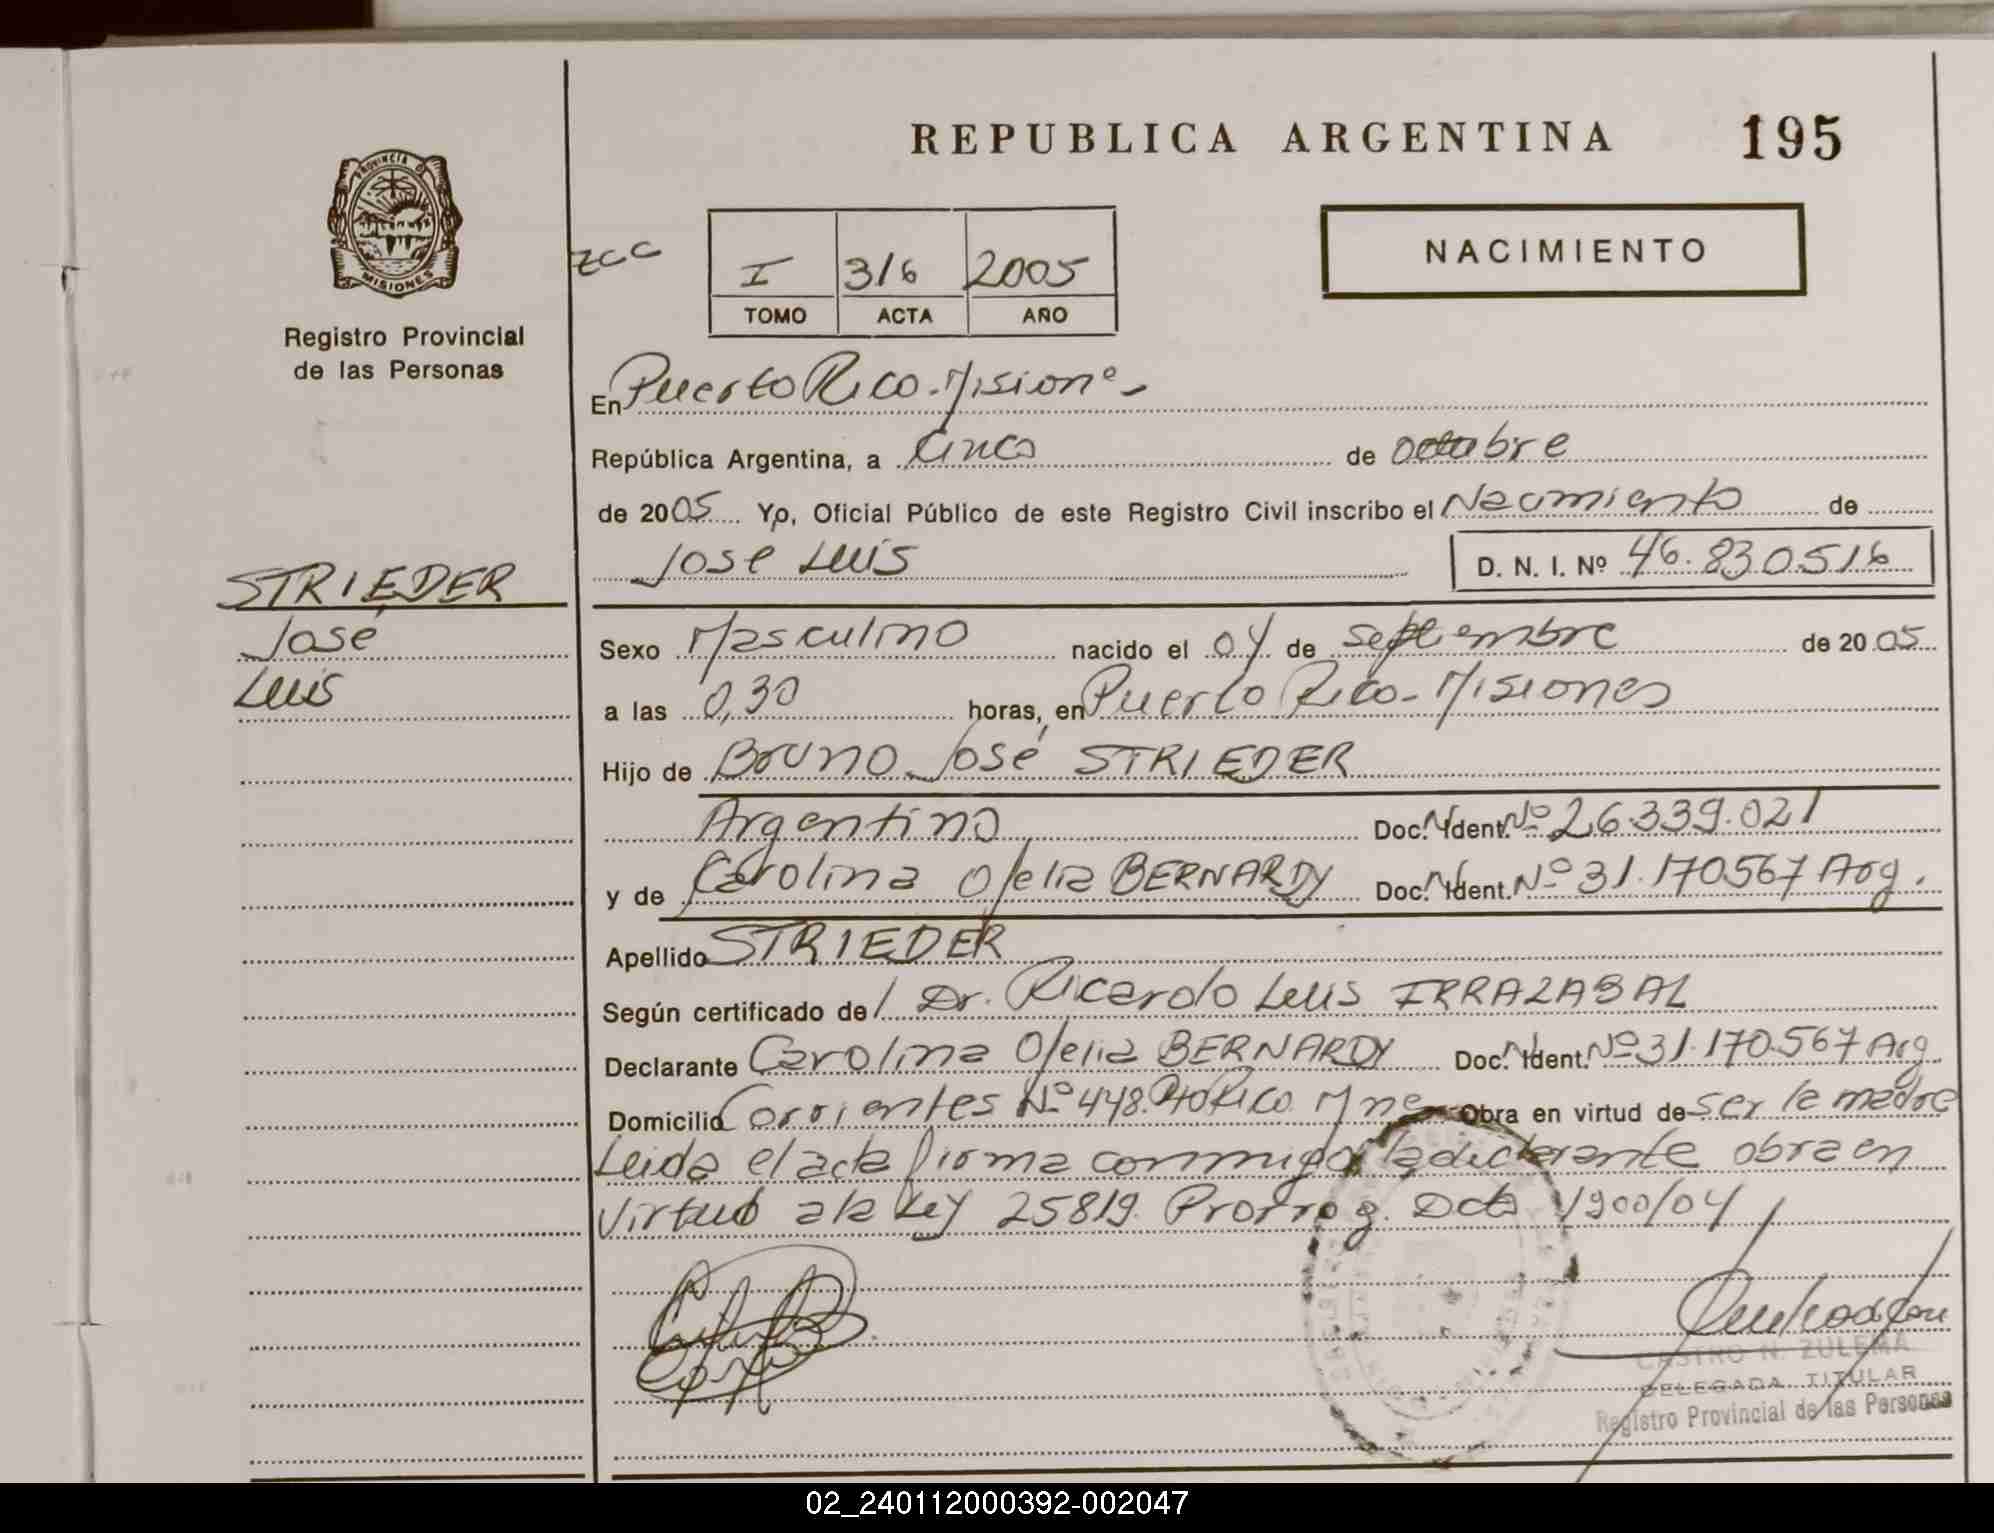 REPUBLICA ARGENTINA 195
PROVINCIA DE
MISIONES
Registro Provincial
de las Personas
zcc
I 316 2005
TOMO ACTA AÑO
NACIMIENTO
En Puerto Rico. Misiones
República Argentina, a Cinco de octubre
de 2005 Yo, Oficial Público de este Registro Civil inscribo el Nacimiento de
José Luis D. N. I. Nº 46.830516
STRIEDER
José
Luis
Sexo Masculino nacido el 04 de septiembre de 2005
a las 0,30 horas, en Puerto Rico - Misiones
Hijo de Bruno José STRIEDER
Argentino Doc. N. Ident. Nº 26.339.021
y de Carolina Ofelia BERNARDY Doc. N. Ident. Nº 31.170567 Arg.
Apellido STRIEDER
Según certificado de l Dr. Ricardo Luis IRRAZABAL
Declarante Carolina Ofelia BERNARDY Doc. N. Ident. Nº 31.170.567 Arg
Domicilio Corrientes Nº 448. Pto Rico. Mnes Obra en virtud de ser la madre
Leida el acta firma conmigo la declarante obra en
virtud a la Ley 25819. Prorrog. Dcto 1900/04
CASTRO N. ZULEMA
DELEGADA TITULAR
Registro Provincial de las Personas
02_240112000392-002047